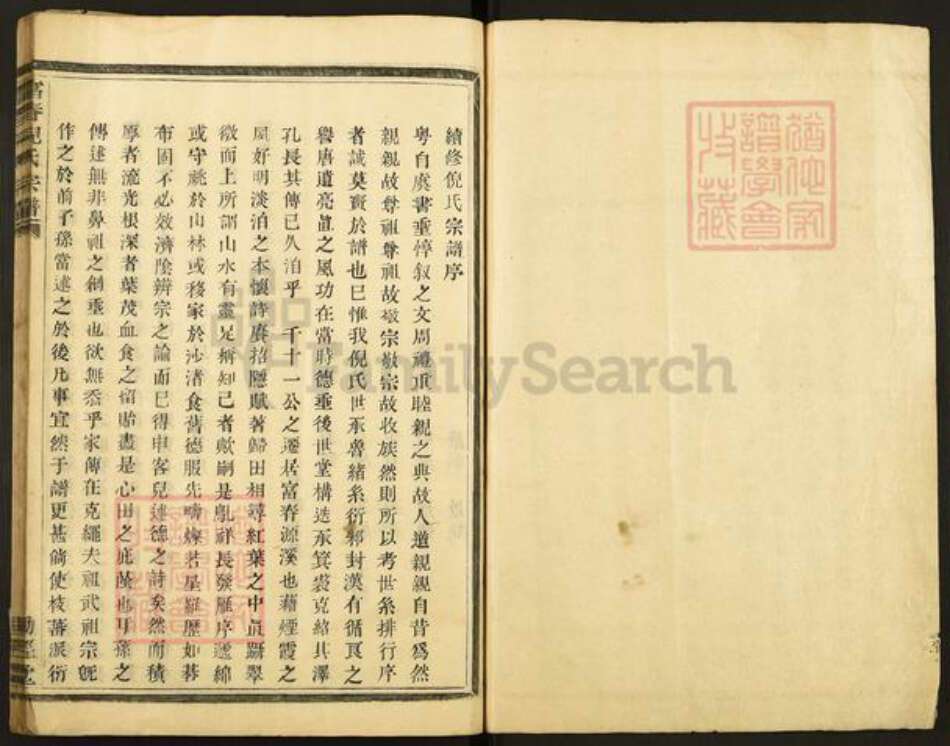 續修倪氏宗譜序
粵自虞書垂惇敘之文周禮重睦親之典故人道親親自昔為然
親親故尊祖尊祖故敬宗敬宗故收族然則所以考世系排行序
者誠莫賚於譜也已惟我倪氏世承魯緒系衍郳封漢有循良之
譽唐遺亮直之風功在當時德垂後世堂構造承箕裘克紹其澤
孔長其傳已久洎乎 千十一公之遷居富春源溪也藉煙霞之
風好明淡泊之本懷詩賡招隱賦著歸田相尋紅葉之中眞躡翠
微而上所謂山水有靈足稱知己者歟嗣是凱祥長發雁序遞綿
或守祧於山林或移家於沙渚食舊德服先疇燦若星羅歷如碁
布固不必效濟陰辨宗之論而已得申客兒述德之詩矣然而積
厚者流光根深者葉茂血食之留貽盡是心田之庇蔭也耳孫之
傳述無非鼻祖之創垂也欲無忝乎家傳在克繩夫祖武祖宗旣
作之於前子孫當述之於後凡事宜然于譜更甚倘使枝蕃派衍
富春倪氏宗譜
猶他家
譜學會
收藏
FamilySearch